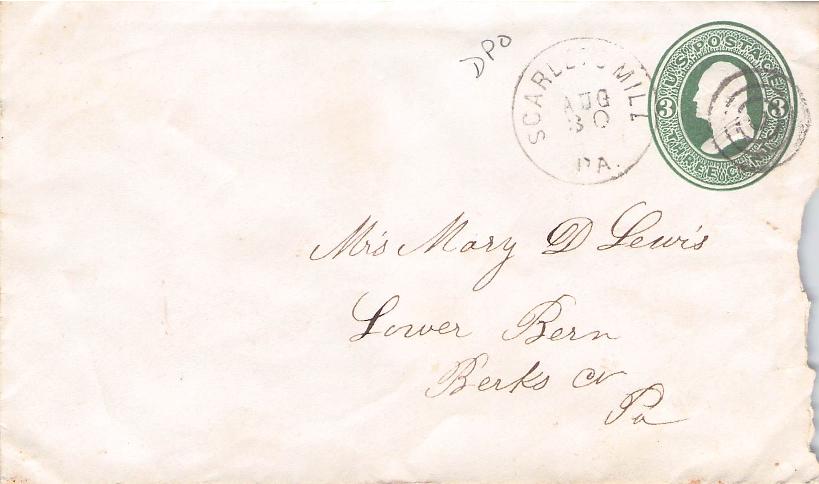 DPO
SCARLETS MILL
AUG
30
PA.
U.S. POSTAGE
3 3
THREE CENTS
Mrs Mary D Lewis
Lower Bern
Berks Co
Pa